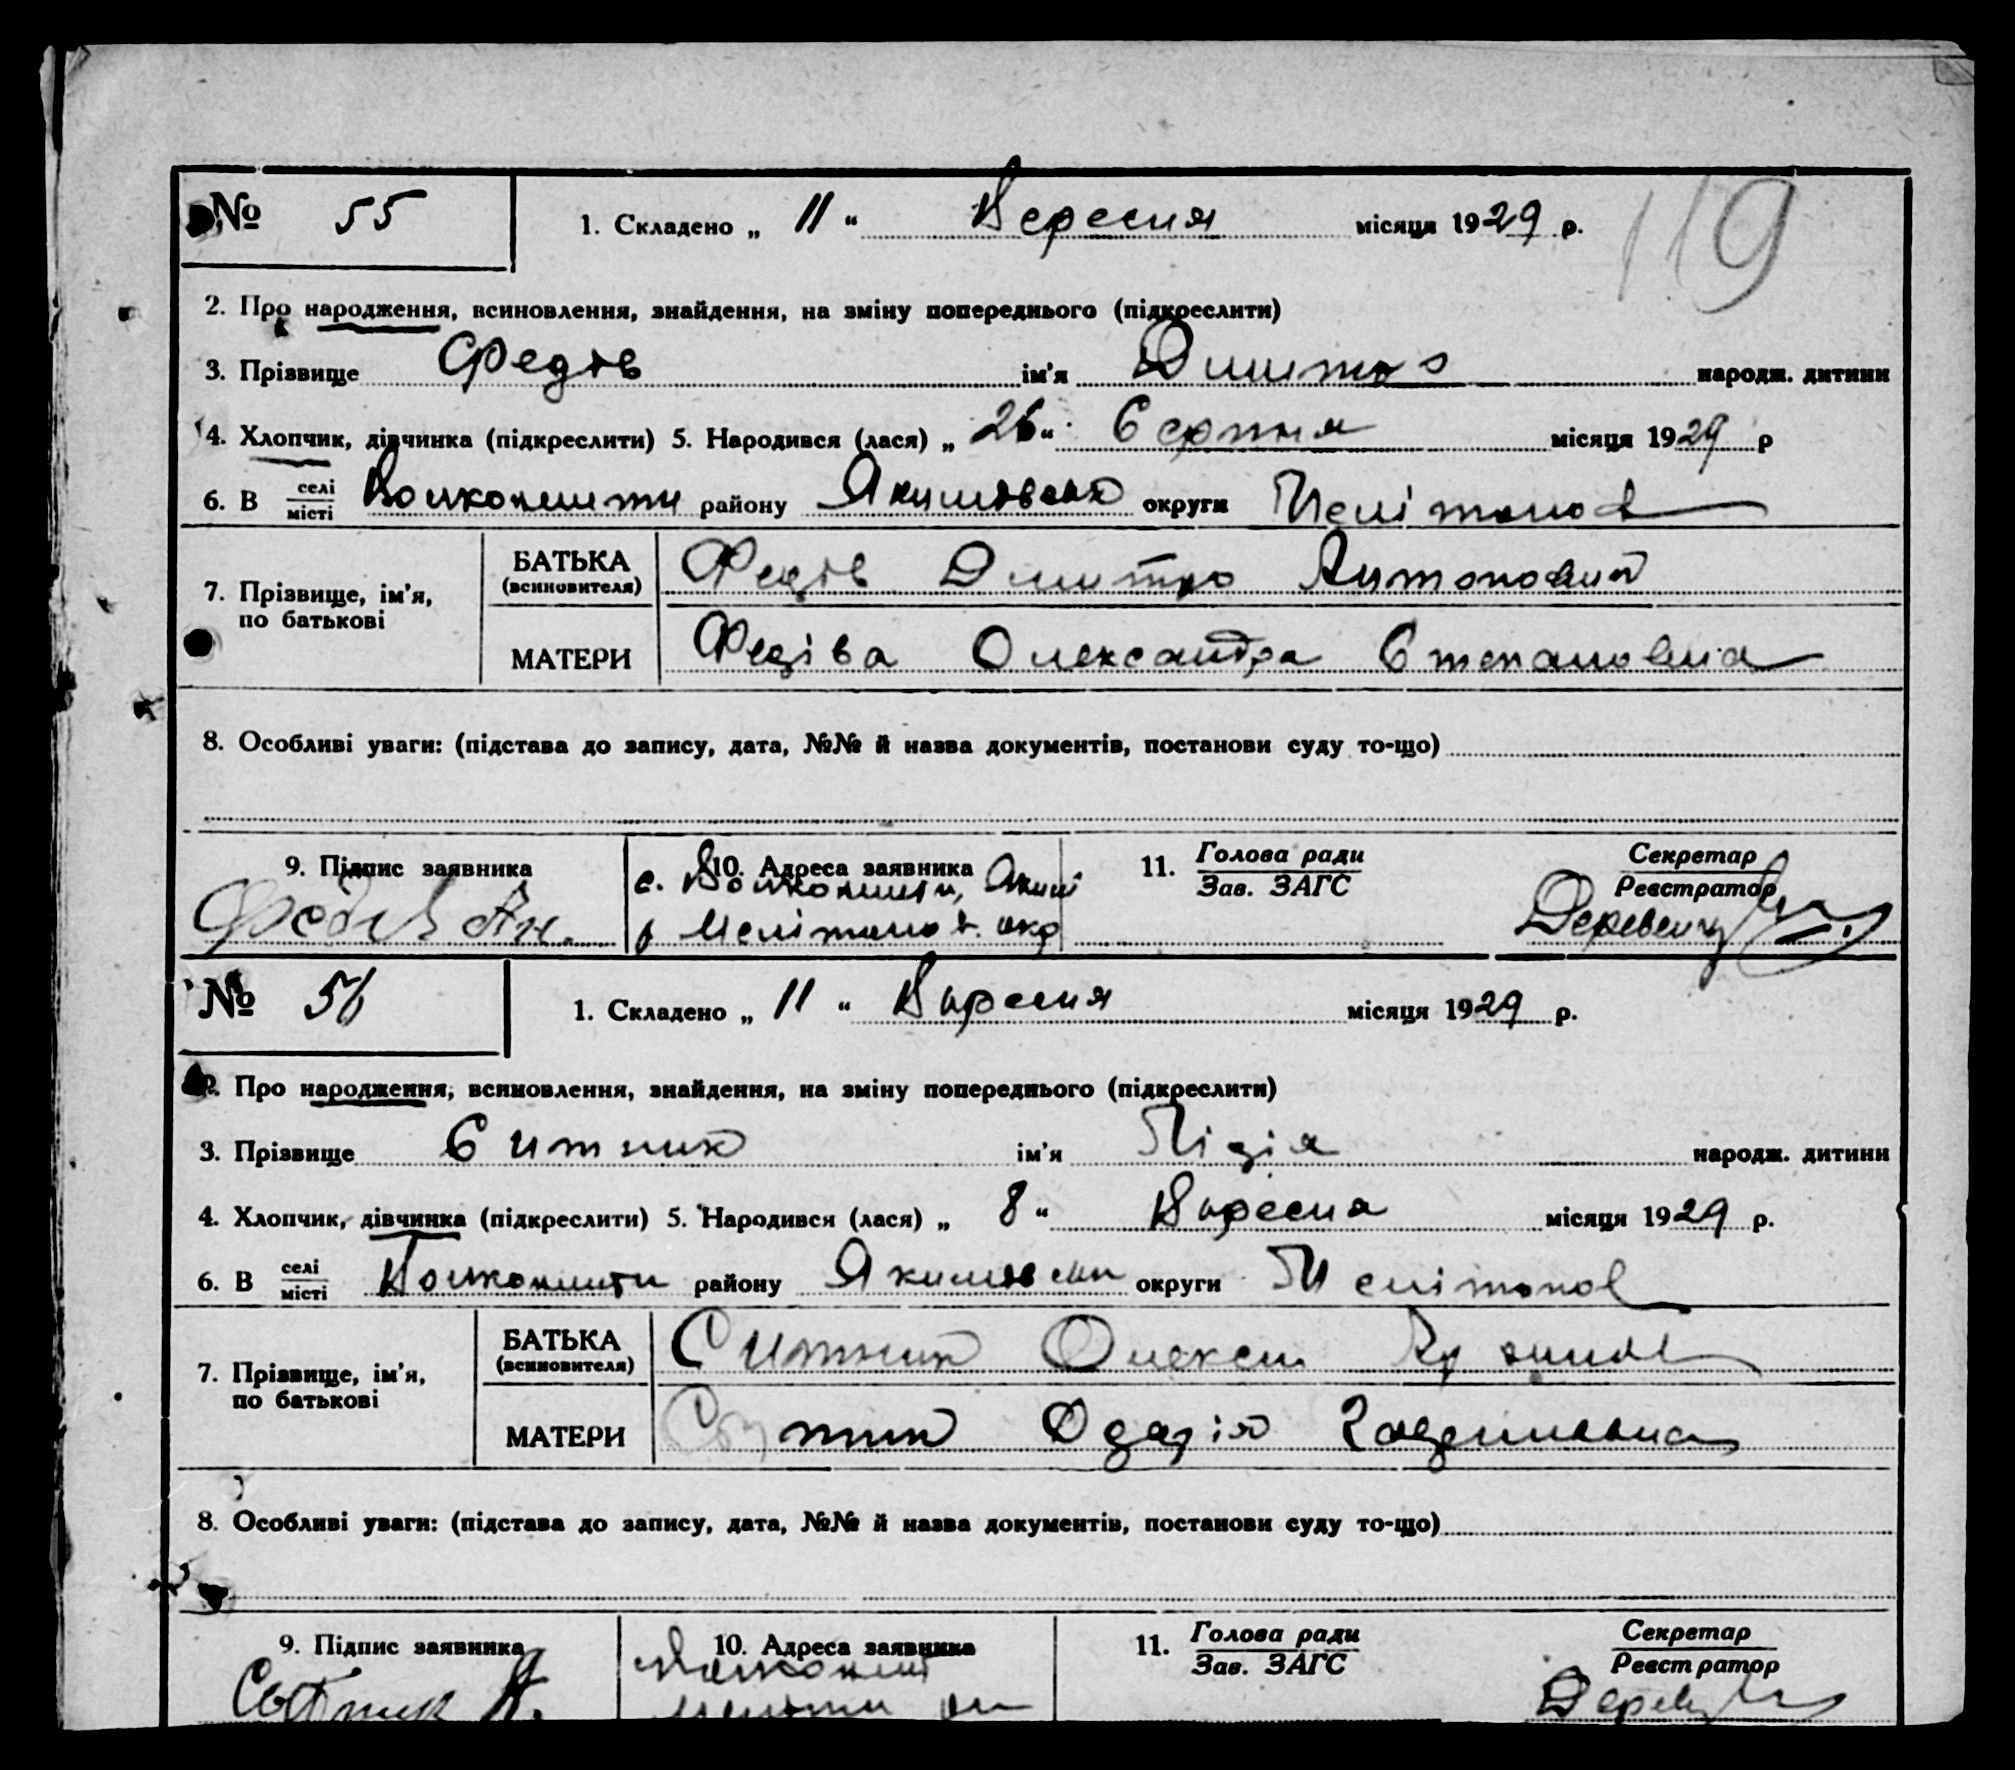 № 55 1. Складено „ 11 “ Вересня місяця 1929 р. 119
2. Про народження, всиновлення, знайдення, на зміну попереднього (підкреслити)
3. Прізвище Федів ім'я Дмитро народж. дитини
4. Хлопчик, дівчинка (підкреслити) 5. Народився (лася) „ 26 “ Серпня місяця 1929 р
6. В селі/місті Вовконешти району Якимовськ округи Мелітопов
7. Прізвище, ім'я, по батькові
БАТЬКА (всиновителя) Федів Дмитро Антонович
МАТЕРИ Федіва Олександра Степановна
8. Особливі уваги: (підстава до запису, дата, №№ й назва документів, постанови суду то-що)
9. Підпис заявника 10. Адреса заявника 11. Голова ради / Зав. ЗАГС Секретар / Реєстратор
Федів Ан. с. Якимі
Мелітопов. окр
№ 56 1. Складено „ 11 “ Вересня місяця 1929 р.
2. Про народження, всиновлення, знайдення, на зміну попереднього (підкреслити)
3. Прізвище Ситник ім'я Лідія народж. дитини
4. Хлопчик, дівчинка (підкреслити) 5. Народився (лася) „ 8 “ Вересня місяця 1929 р.
6. В селі/місті району Якимовськ округи Мелітопов
7. Прізвище, ім'я, по батькові
БАТЬКА (всиновителя) Ситник Олексій
МАТЕРИ Ситник Одарія
8. Особливі уваги: (підстава до запису, дата, №№ й назва документів, постанови суду то-що)
9. Підпис заявника 10. Адреса заявника 11. Голова ради / Зав. ЗАГС Секретар / Реєстратор
Сытник А.